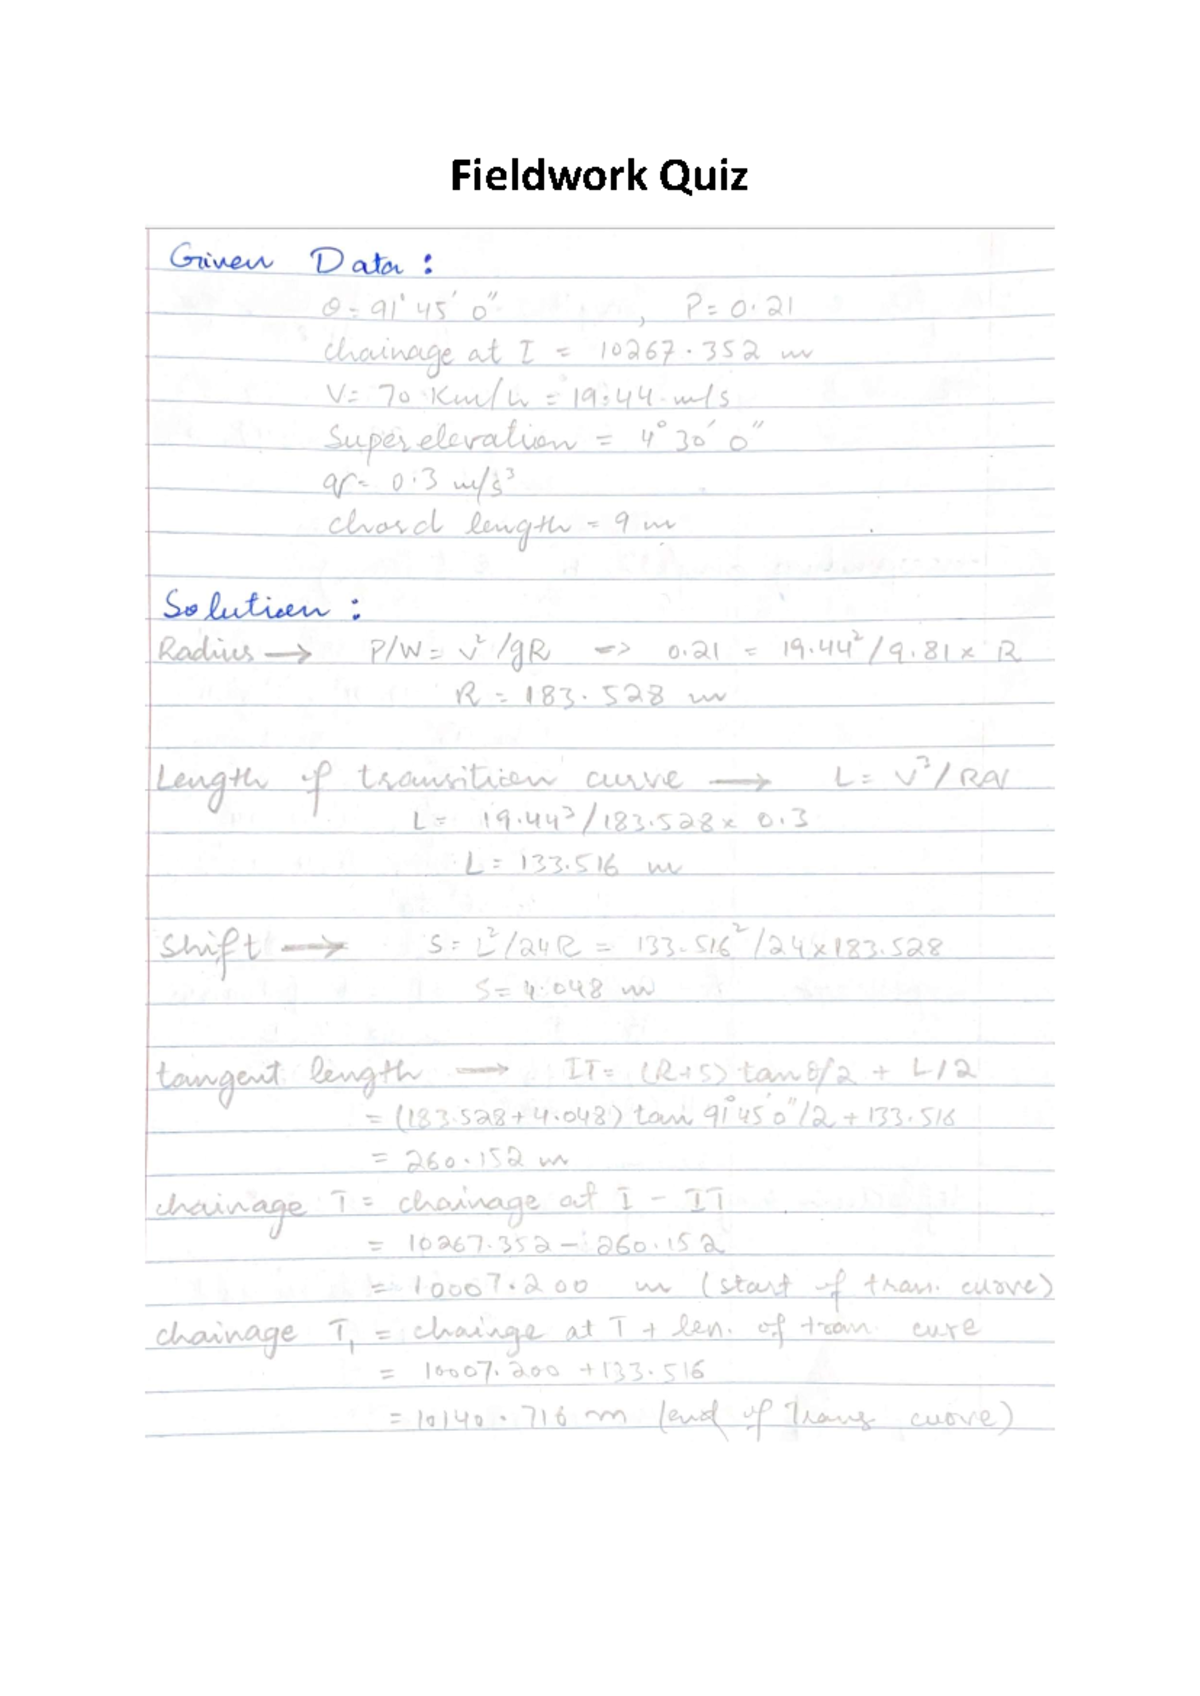 Fieldwork Quiz
Given Data :
θ = 91° 45' 0" , P = 0.21
Chainage at I = 10267.352 m
V = 70 Km/h = 19.44 m/s
Super elevation = 4° 30' 0"
= 0.3 m/s³
chord length = 9 m
Solution :
Radius → P/W = v²/gR => 0.21 = 19.44²/9.81 x R
R = 183.528 m
Length of transition curve → L = v³/Rα
L = 19.44³/183.528 x 0.3
L = 133.516 m
Shift → S = L²/24R = 133.516²/24x183.528
S = 4.048 m
tangent length → IT = (R+S) tan θ/2 + L/2
= (183.528 + 4.048) tan 91° 45' 0"/2 + 133.516
= 260.152 m
chainage T = chainage at I - IT
= 10267.352 - 260.152
= 10007.200 m (start of tran. curve)
chainage T₁ = chainge at T + len. of tran. cure
= 10007.200 + 133.516
= 10140.716 m (end of Trans curve)